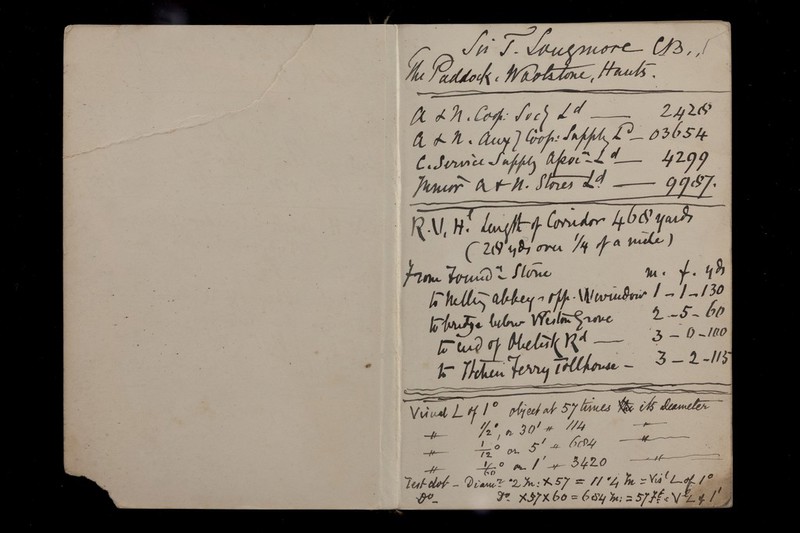 Sir T. Longmore CB.,
The Paddock, Woolstone, Hants.
A & N. Coop: Socy Ld — 2428
A & N. Auxy Coop: Supply Ld — 03654
C. Service Supply Assocn Ld — 4299
Junior A & N. Stores Ld — 9987.
R.V.Hl Length of Corridor 468 yards
(28 yds over 1/4 of a mile)
From Foundn Stone m. f. yds
to Netley Abbey opp. W window 1 – 1 – 130
to bridge below Weston Grove 2 – 5 – 60
to end of Obelisk Rd — 3 – 0 – 100
to Itchen Ferry Tollhouse – 3 – 2 – 115
Visual L of 1° object at 57 times its diameter
〃 1/2°, or 30' 〃 114 〃
〃 1/12° or 5' 〃 684 〃
〃 1/60° or 1' 〃 3420 〃
Test dot – Diamr ·2 In: × 57 = 11·4 In = Visl L of 1°
Do_ Do × 57 × 60 = 684 In: = 57 Ft = Vl L of 1'